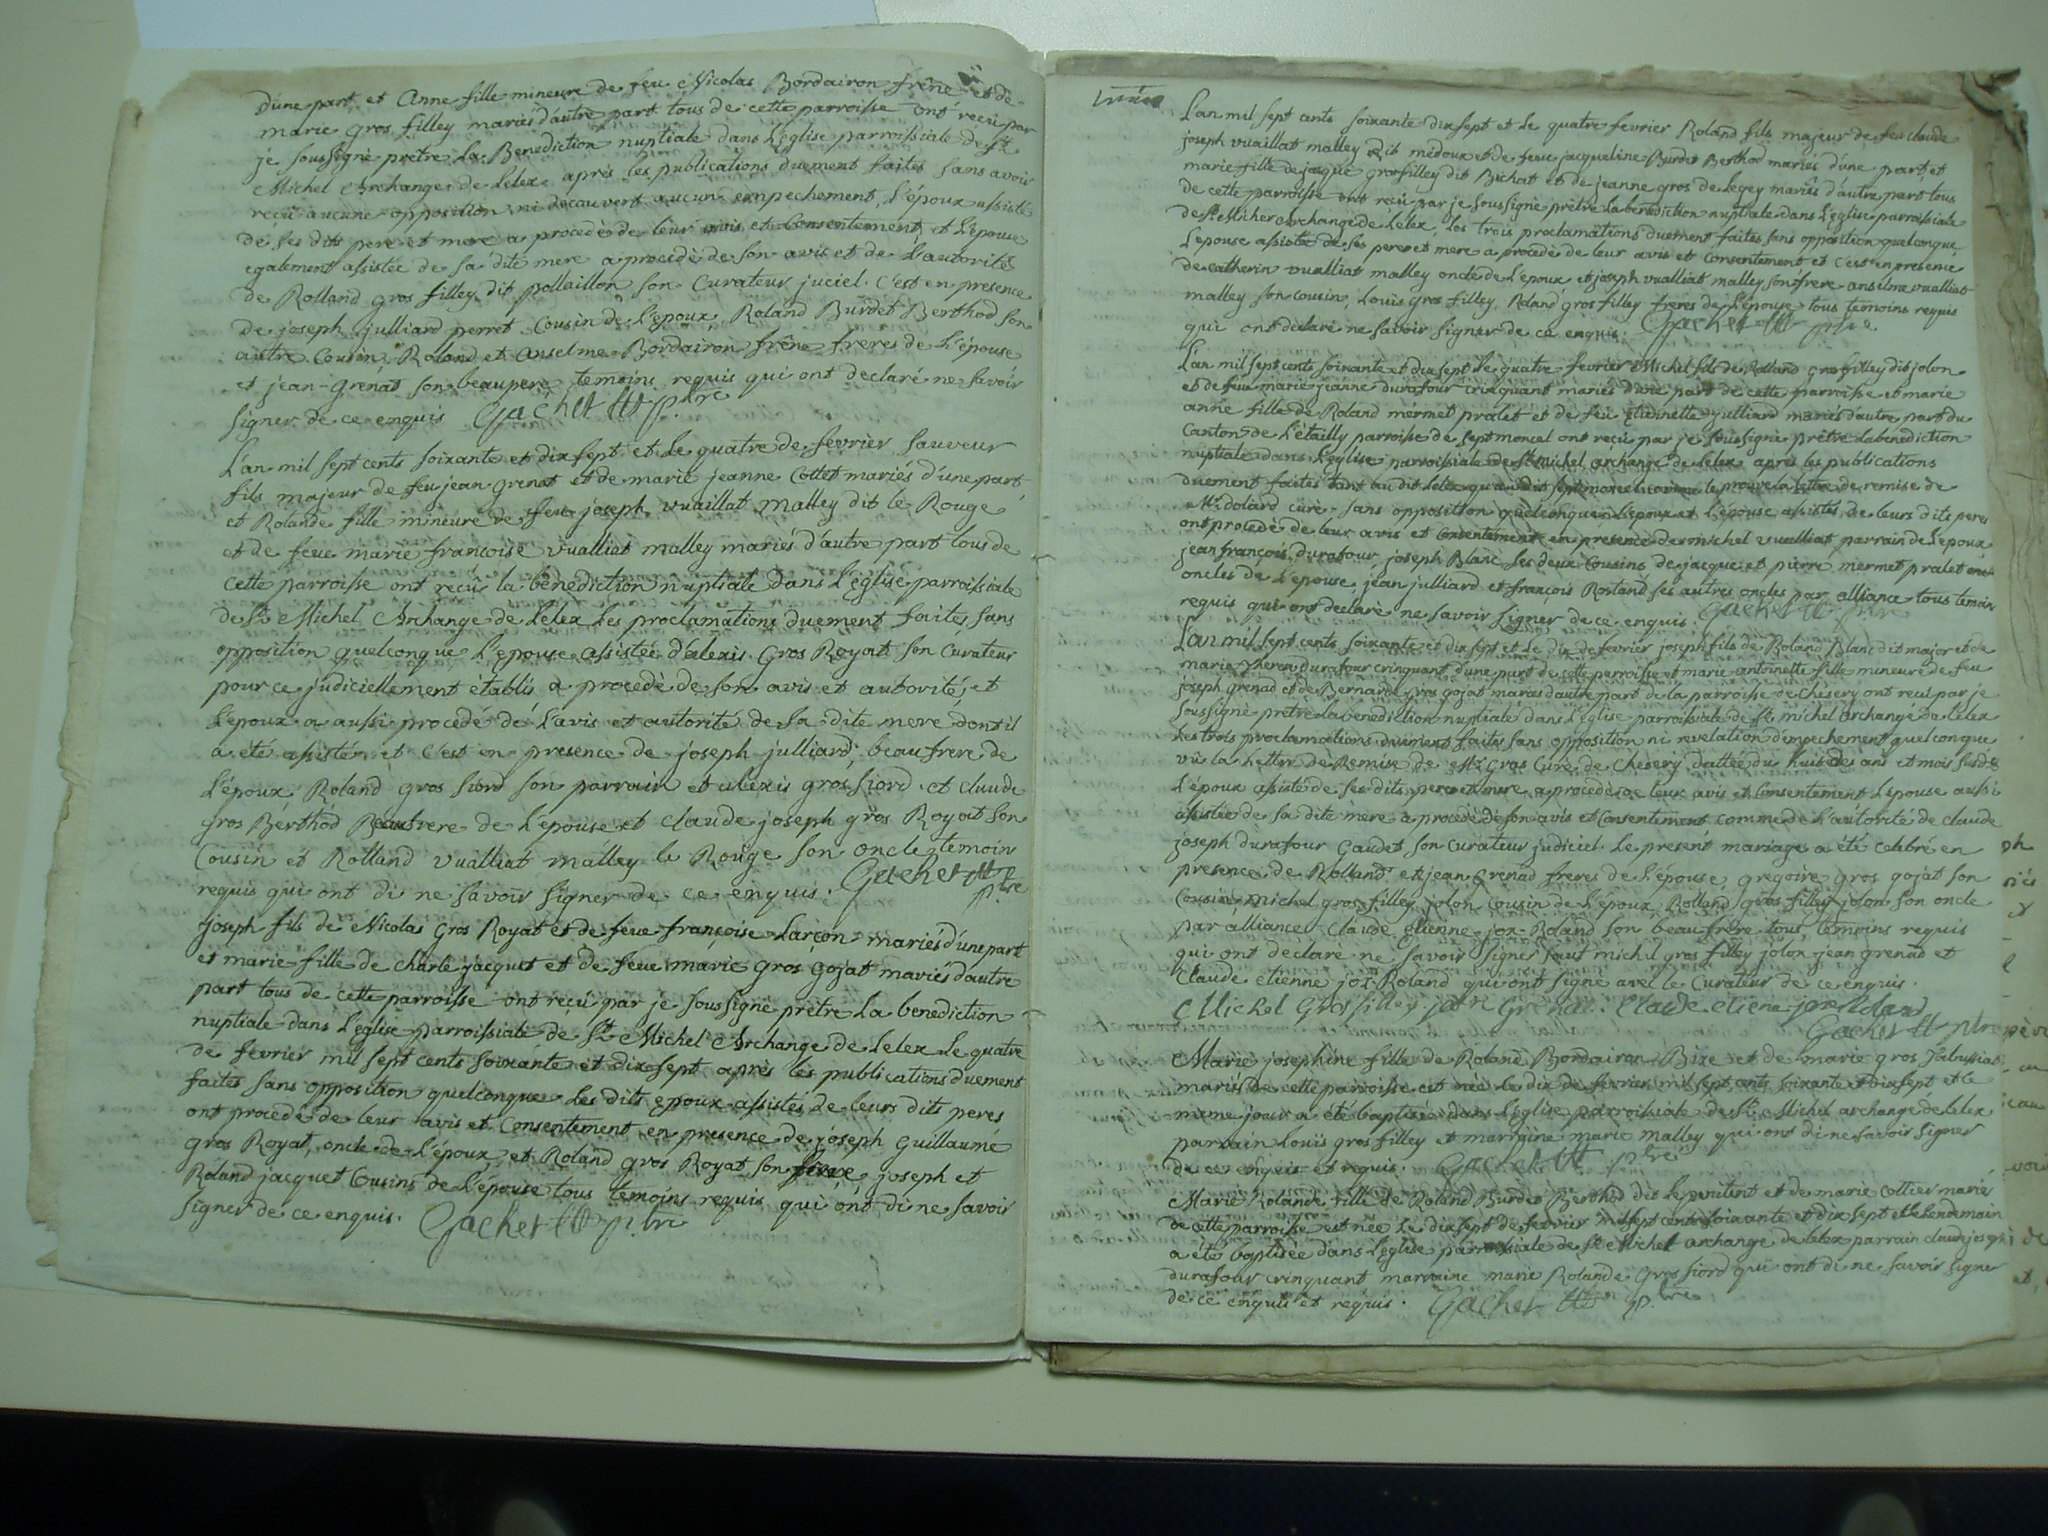 d'une part et Anne fille mineure de feu Nicolas Bordairon frêne et de
marie gros filley mariés d'autre part tous de cette parroisse ont recû par
je soussigné prêtre La Benediction nuptiale dans L'eglise parroissiale de St
Michel Archange de Lelex après les publications duement faites sans avoir
reçu aucune opposition ni decouvert aucun empechement, L'époux assisté
de ses dits pere et mere a procedé de leur avis et Consentement et L'epouse
egalement assistée de sa dite mere a procedé de son avis et de L'autorité
de Rolland gros filley dit pollaillon son Curateur juciel. C'est en presence
de joseph julliard perret Cousin de L'époux, Roland Burdet Berthod son
autre Cousin, Roland et anselme Bordairon frêne freres de L'épouse
et jean grenat son beaupere temoins requis qui ont declaré ne savoir
signer de ce enquis Gachet ptre
L'an mil sept cents soixante et dix sept et Le quatre de fevrier sauveur
fils majeur de feu jean grenat et de marie jeanne Cottet mariés d'une part
et Rolande fille mineure de feu joseph vuaillat malley dit le Rouge
et de feue marie françoise vualliat malley mariés d'autre part tous de
cette parroisse ont reçû la bénediction nuptiale dans L'eglise parroissiale
de St Michel Archange de Lelex Les proclamations duement faites sans
opposition quelconque L'epouse assistée d'alexis Gros Royat son Curateur
pour ce judiciellement ètablis a procedé de son avis et autorité, et
L'époux a aussi procedé de L'avis et autorité de sa dite mere dont il
a été assisté et C'est en presence de joseph julliard beaufrere de
L'époux Roland gros fiord son parrain et alexis gros fiord et claude
gros Bérthod Beaufrere de L'epouse et claude joseph gros Royat son
Cousin et Rolland vualliat malley le Rouge son oncle temoin
requis qui ont di ne savoir signer de ce enquis. Gachet ptre
joseph fils de Nicolas Gros Royat et de feue françoise Larçon mariés d'une part
et marie fille de charle jacquet et de feue marie gros gojat mariés d'autre
part tous de cette parroisse ont reçu par je soussigné prêtre La benediction
nuptiale dans L'eglise parroissiale de St Michel Archange de Lelex Le quatre
de fevrier mil sept cents soixante et dix sept après les publications duement
faites sans opposition quelconque Les dits epoux assistés de leurs dits peres
ont procedé de leur avis et Consentement en presence de joseph guillaume
gros Royat oncle de L'époux et Roland gros Royat son frere joseph et
Roland jacquet Cousins de L'epouse tous temoins requis qui ont di ne savoir
signer de ce enquis. Gachet ptre
L'an mil sept cents soixante dix sept et Le quatre fevrier Roland fils majeur de feu claude
joseph vuaillat malley dit médoux et de feue jacqueline Burdet Berthod mariés d'une part, et
marie fille de jaque gros filley dit Bichat et de jeanne gros de Legey mariés d'autre part tous
de cette parroisse ont reçu par je soussigné prêtre La benediction nuptiale dans L'eglise parroissiale
de St Michel archange de Lelex, Les trois proclamations duement faites sans opposition quelconque
L'epouse assistée de ses pere et mere a procedé de leur avis et Consentement et C'est en presence
de Catherin vualliat malley oncle de L'époux et joseph vualliat malley son frere anselme vualliat
malley son cousin, Louis gros filley Roland gros filley freres de L'épouse tous temoins requis
qui ont declaré ne savoir signer de ce enquis. Gachet ptre
L'an mil sept cents soixante et dix sept Le quatre fevrier Michel fils de Rolland gros filley dit jolon
et de feue marie jeanne durafour crinquant mariés d'une part de cette parroisse et marie
anne fille de Roland mermet pralet et de feue Etiennette julliard mariés d'autre part du
Canton de L'étailly parroisse de septmoncel ont reçu par je soussigné prêtre La bénediction
nuptiale dans L'eglise parroissiale de St michel archange de Lelex après les publications
duement faites tant au dit Lelex qu'au dit septmoncel comme le prouve la lettre de remise de
Mr dolard curé sans opposition quelconque L'époux et L'épouse assistés de leurs dits peres
ont procedé de leur avis et Consentement en presence de michel vualliat parrain de L'epoux
jean françois durafour, joseph Blanc ses deux Cousins de jacque et pierre mermet pralet
oncles de L'épouse, jean julliard et françois Rostand ses autres oncles par alliance tous temoin
requis qui ont declaré ne savoir signer de ce enquis. Gachet ptre
L'an mil sept cents soixante et dix sept et Le dix de fevrier joseph fils de Roland Blanc dit major et de
marie durafour crinquant d'une part de cette parroisse et marie antoinette fille mineure de feu
joseph grenad et de Bernarde gros gojat mariés d'autre part de la parroisse de Chesery ont recu par je
soussigné prêtre La benediction nuptiale dans L'eglise parroissiale de St michel archange de Lelex
Les trois proclamations duement faites sans opposition ni revelation d'empechement quelconque
vû La Lettre de Remise de Mr Gros Curé de Chesery dattée du huit des ans et mois susd.
L'époux assisté de ses dits pere et mere a procedé de leur avis et Consentement L'épouse aussi
assistée de sa dite mère a procedé de son avis et Consentement comme de L'autorité de claude
joseph durafour Gaudet son Curateur judiciel. Le present mariage a été celebré en
presence de Rolland et jean Grenad freres de L'épouse gregoire gros gojat son
Cousin michel gros filley jolon Cousin de L'époux Rolland gros filley jolon son oncle
par alliance Claude Etienne joz-Roland son beaufrere tous temoins requis
qui ont declaré ne savoir signer sauf michel gros filley jolon jean grenad et
Claude etienne joz-Roland qui ont signé avec le Curateur de ce enquis.
Michel Grosfilley jean Grenad Claude etiene joz Rolan
Gachet ptre
Marie josephine fille de Roland Bordairon Bize et de marie gros
mariés de cette parroisse est née Le dix de fevrier mil sept cents soixante et dix sept et le
meme jour a été baptisée dans L'eglise parroissiale de St Michel archange de Lelex
parrain Louis gros filley et marraine marie malley qui ont di ne savoir signer
de ce enquis et requis. Gachet ptre
Marie Rolande fille de Roland Burdet Berthod dit Le penitent et de marie Collier mariés
de cette parroisse est née Le dix sept de fevrier mil sept cents soixante et dix sept et Le Lendemain
a été baptisée dans L'eglise parroissiale de St Michel archange de Lelex parrain claude
durafour crinquant marraine marie Rolande Gros fiord qui ont di ne savoir signer
de ce enquis et requis. Gachet ptre